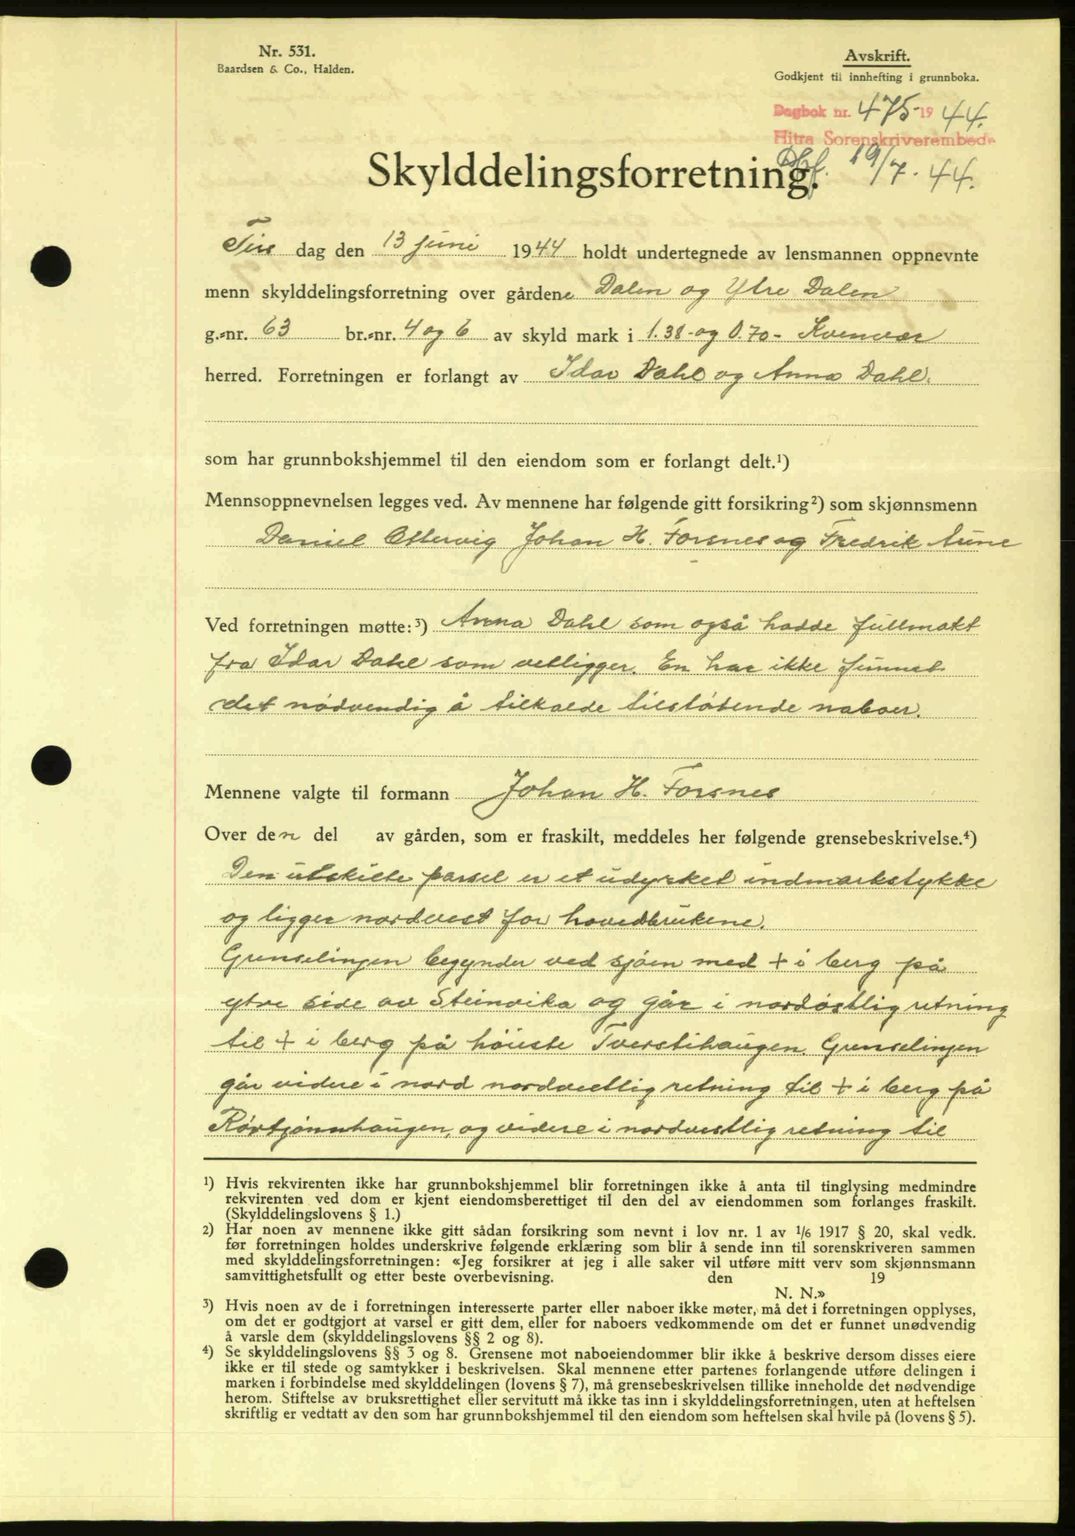 Nr. 531.
Baardsen & Co., Halden.
Avskrift.
Godkjent til innhefting i grunnboka.
Dagbok nr. 475-1944.
Hitra Sorenskriverembede
19/7-44.
Skylddelingsforretning.
Tirs dag den 13 juni 1944 holdt undertegnede av lensmannen oppnevnte
menn skylddelingsforretning over gårdene Dalen og Ytre Dalen
g.-nr. 63 br.-nr. 4 og 6 av skyld mark i 1.38- og 0.70- Kvenvær
herred. Forretningen er forlangt av Idar Dahl og Anna Dahl.
som har grunnbokshjemmel til den eiendom som er forlangt delt.¹)
Mennsoppnevnelsen legges ved. Av mennene har følgende gitt forsikring²) som skjønnsmenn
Daniel Ottervig Johan H. Forsnes og Fredrik Aune
Ved forretningen møtte:³) Anna Dahl som også hadde fullmakt
fra Idar Dahl som vedligger. En har ikke funnet
det nødvendig å tilkalde tilstøtende naboer.
Mennene valgte til formann Johan H. Forsnes
Over den del av gården, som er fraskilt, meddeles her følgende grensebeskrivelse.⁴)
Den utskilte parsel er et udyrket indmarkstykke
og ligger nordvest for hovedbrukene.
Grenselinjen begynder ved sjøen med + i berg på
ytre side av Steinvika og går i nordøstlig retning
til + i berg på höieste Tverstihaugen. Grenselinjen
går videre i nord nordvestlig retning til + i berg på
Rørtjønnhaugen, og videre i nordvestlig retning til
¹) Hvis rekvirenten ikke har grunnbokshjemmel blir forretningen ikke å anta til tinglysing medmindre
rekvirenten ved dom er kjent eiendomsberettiget til den del av eiendommen som forlanges fraskilt.
(Skylddelingslovens § 1.)
²) Har noen av mennene ikke gitt sådan forsikring som nevnt i lov nr. 1 av 1/6 1917 § 20, skal vedk.
før forretningen holdes underskrive følgende erklæring som blir å sende inn til sorenskriveren sammen
med skylddelingsforretningen: «Jeg forsikrer at jeg i alle saker vil utføre mitt verv som skjønnsmann
samvittighetsfullt og etter beste overbevisning. den 19
N. N.»
³) Hvis noen av de i forretningen interesserte parter eller naboer ikke møter, må det i forretningen opplyses,
om det er godtgjort at varsel er gitt dem, eller for naboers vedkommende om det er funnet unødvendig
å varsle dem (skylddelingslovens §§ 2 og 8).
⁴) Se skylddelingslovens §§ 3 og 8. Grensene mot naboeiendommer blir ikke å beskrive dersom disses eiere
ikke er til stede og samtykker i beskrivelsen. Skal mennene etter partenes forlangende utføre delingen i
marken i forbindelse med skylddelingen (lovens § 7), må grensebeskrivelsen tillike inneholde det nødvendige
herom. Stiftelse av bruksrettighet eller servitutt må ikke tas inn i skylddelingsforretningen, uten at heftelsen
skriftlig er vedtatt av den som har grunnbokshjemmel til den eiendom som heftelsen skal hvile på (lovens § 5).